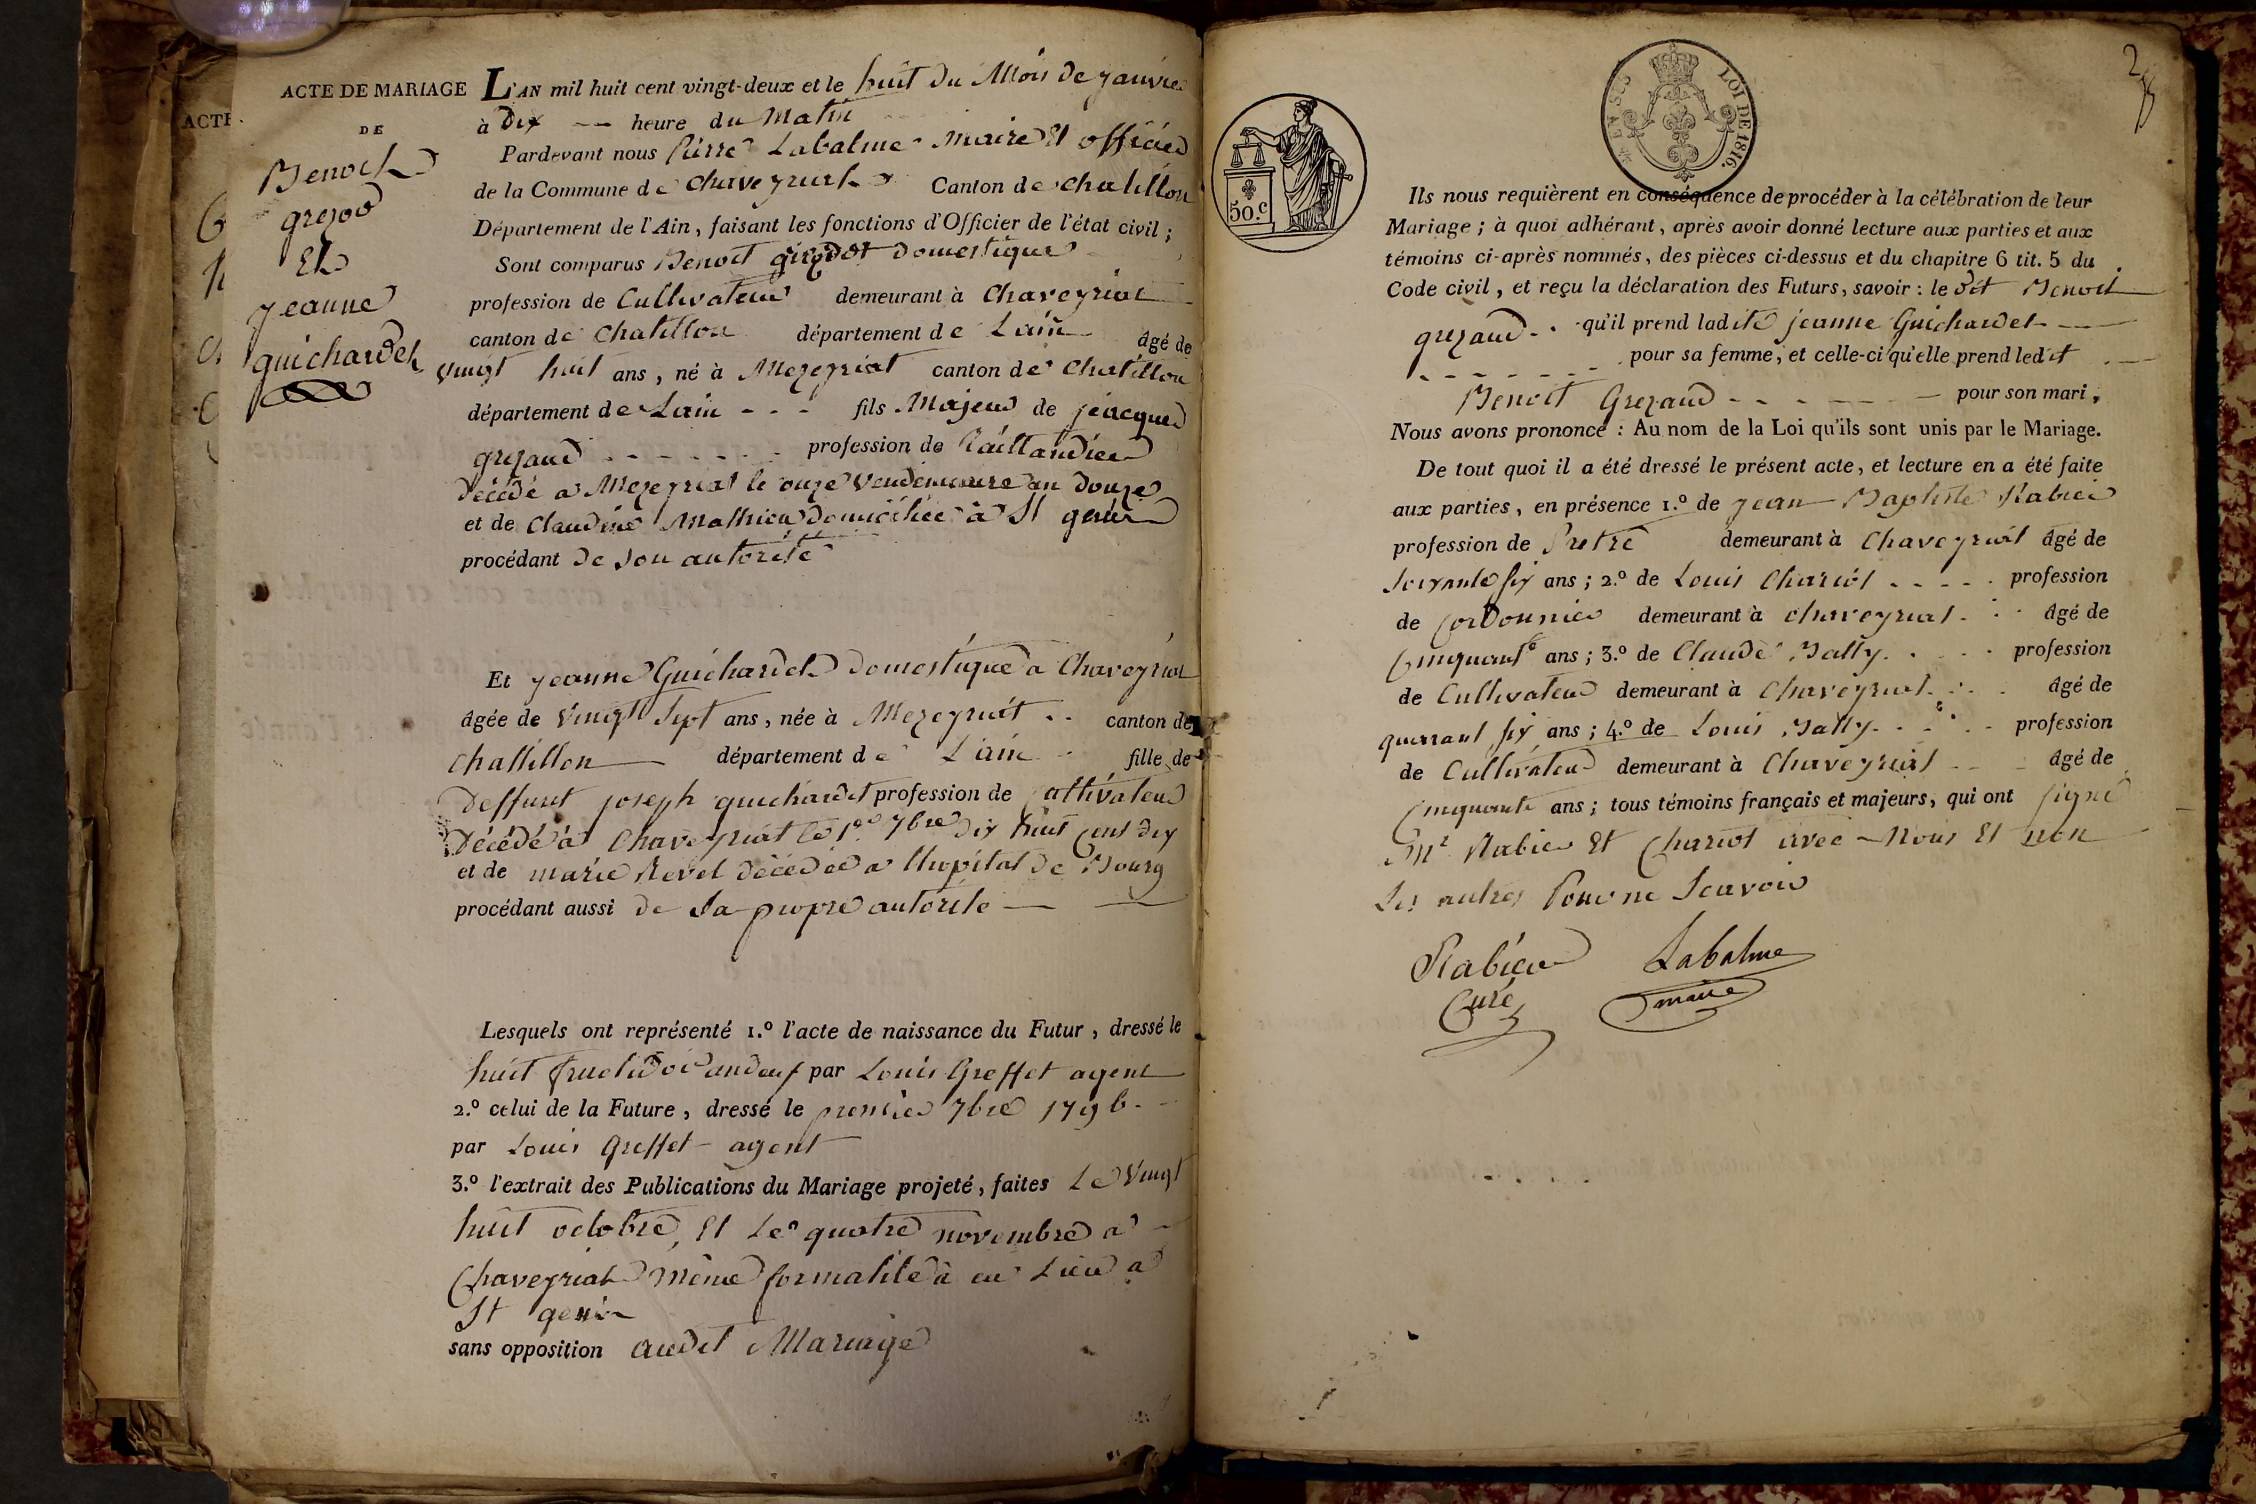 ACTE DE MARIAGE
DE
Benoit
grezod
Et
jeanne
guichardet
ACTE
L'AN mil huit cent vingt-deux et le huit du Mois de janvier
à Dix -- heure du Matin
Pardevant nous Pierre Labalme maire Et officier
de la Commune de Chaveyriat Canton de chatillon
Département de l'Ain, faisant les fonctions d'Officier de l'état civil ;
Sont comparus Benoit domestique
profession de Cultivateur demeurant à Chaveyriat
canton de chatillon département de Lain âgé de
vingt huit ans, né à Mezeyriat canton de Chatillon
département de Lain - - - fils Majeur de jeacques
grezaud - - - - - - profession de taillandier
décédé a Mezeyriat le onze vendemiaire an douze
et de Claudine Mathieu domiciliée à St genis
procédant de son autorité
Et jeanne Guichardet domestique a Chaveyriat
âgée de vingt sept ans, née à Mezeyriat .. canton de
chatillon département de L'ain fille de
deffunt joseph guichardet profession de Cultivateur
décédé à Chaveyriat le 1er 7bre dix huit cent dix
et de marie Revel décédée a l'hopital de Bourg
procédant aussi de sa propre autorité
Lesquels ont représenté 1.º l'acte de naissance du Futur, dressé le
huit fructidor par Louis Greffet agent
2.º celui de la Future, dressé le premier 7bre 179
par Louis Greffet agent
3.º l'extrait des Publications du Mariage projeté, faites Le vingt
huit octobre, Et Le quatre novembre a
Chaveyriat même formalité à eu Lieu a
St genis
sans opposition audit Mariage
50.c
LOI DE 1816.
2
Ils nous requièrent en conséquence de procéder à la célébration de leur
Mariage ; à quoi adhérant, après avoir donné lecture aux parties et aux
témoins ci-après nommés, des pièces ci-dessus et du chapitre 6 tit. 5 du
Code civil, et reçu la déclaration des Futurs, savoir : le dit Benoit
grezaud - . qu'il prend ladite jeanne Guichardet
pour sa femme, et celle-ci qu'elle prend ledit
Benoit Grezaud - - - - - pour son mari,
Nous avons prononcé : Au nom de la Loi qu'ils sont unis par le Mariage.
De tout quoi il a été dressé le présent acte, et lecture en a été faite
aux parties, en présence 1.º de jean Baptiste Rabier
profession de Pretre demeurant à Chaveyriat âgé de
soixante six ans ; 2.º de Louis Chariot - - - - profession
de Cordonnier demeurant à chaveyriat. âgé de
Cinquante ans ; 3.º de Claude Bally. profession
de Cultivateur demeurant à Chaveyriat. âgé de
quarant six ans ; 4.º de Louis Bally. profession
de Cultivateur demeurant à Chaveyriat âgé de
Cinquante ans ; tous témoins français et majeurs, qui ont signé
Mr Rabier Et Chariot avec Nous Et non
Les autres Pour ne Scavoir
Rabier Labalme
Curé maire